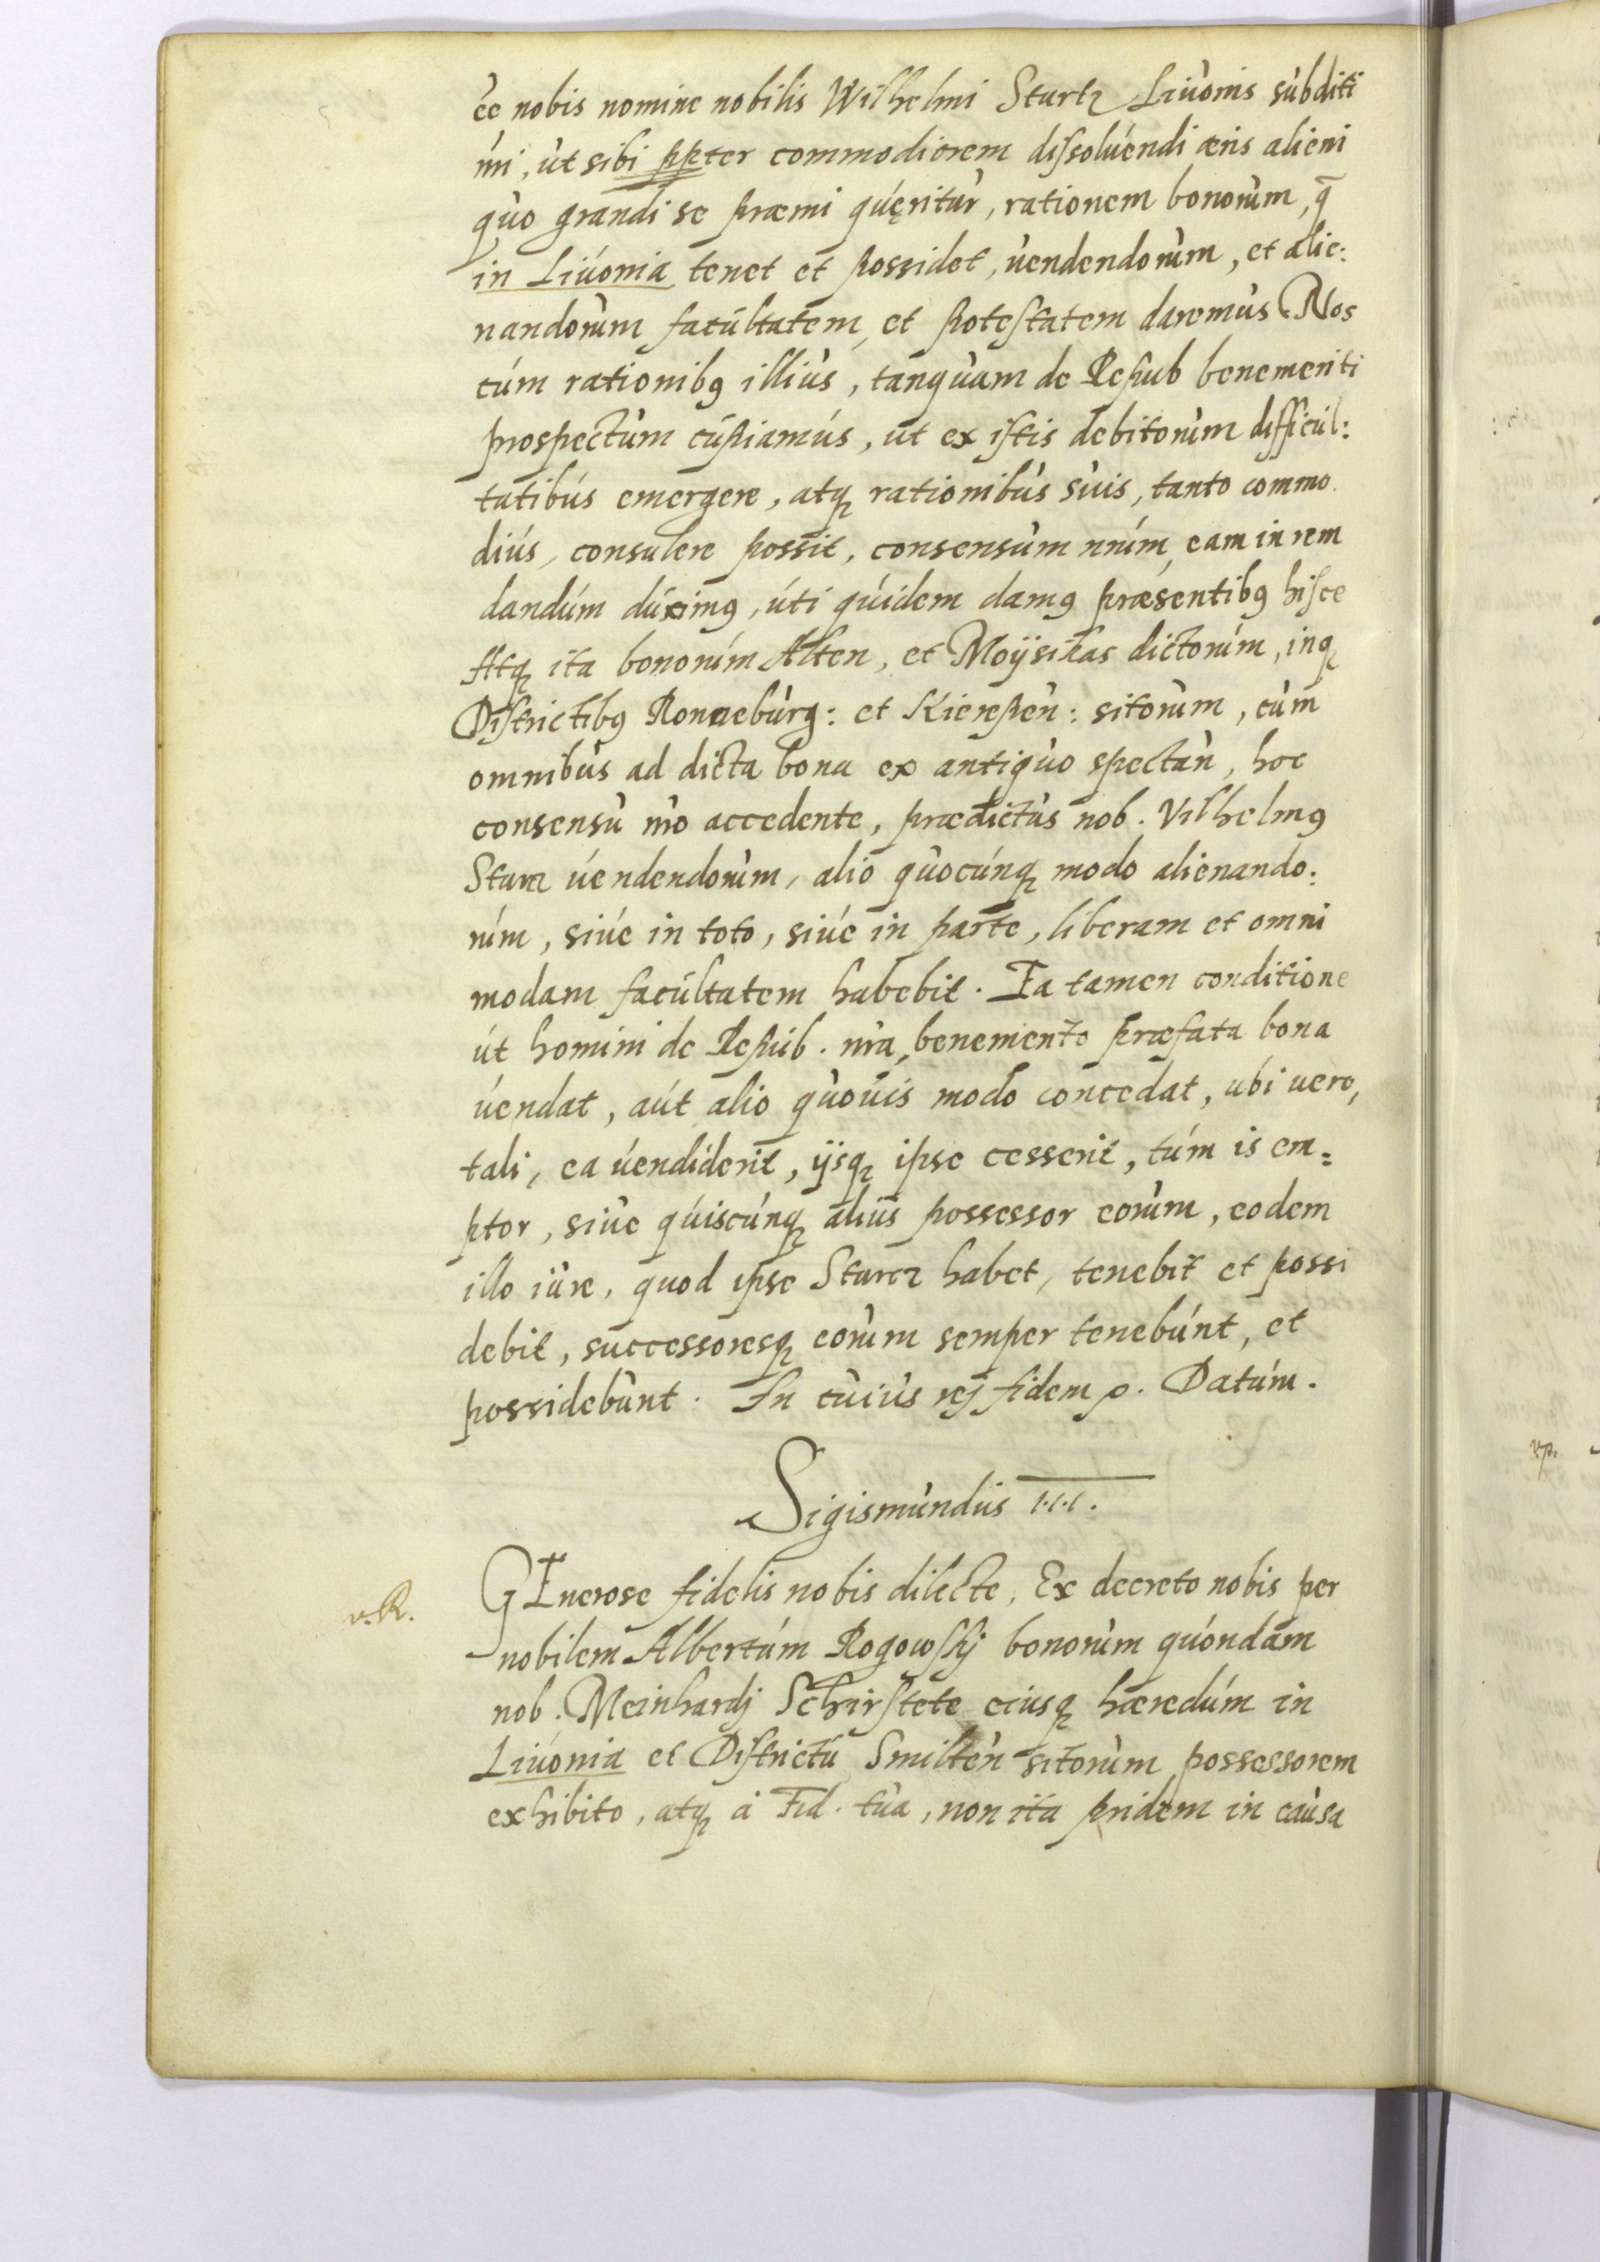 ee nobis nomine nobilis Wilhelmi Startz Liuonis subditi
nri, ut sibi ppter commodiorem dissoluendi aeris alieni
quo grandi se praemi quęritur, rationem bonorum, q̄
in Liuonia tenet et possidet, uendendorum, et alie:
nandorum facultatem, et potestatem daremus Nos
cum rationibq illius, tanquam de Repub benemeriti
prospectum cupiamus, ut ex istis debitorum difficul:
tatibus emergere, atq rationibus suis, tanto commo
dius, consulere possit, consensum nrum, eam in rem
dandum duximq, uti quidem damq praesentibq hisce
Atq ita bonorum Alten, et Moÿsikas dictorum, inq
Districtibq Ronneburg: et Kierepen: sitorum, cum
omnibus ad dicta bona ex antiquo spectan, hoc
consensu nro accedente, praedictus nob. Vilhelmq
Starz uendendorum, alio quocunq modo alienando:
rum, siue in toto, siue in parte, liberam et omni
modam facultatem habebit. Ea tamen conditione
ut homini de Repub. nra benemerito praefata bona
uendat, aut alio quouis modo concedat, ubi uero,
tali, ea uendiderit, ijsq ipse cesserit, tum is em=
ptor, siue quiscunq alius possessor eorum, eodem
illo iure, quod ipse Starcz habet, tenebit et possi
debit, successoresq eorum semper tenebunt, et
possidebunt. In cuius rej fidem p. Datum.
Sigismundus III.
v.R.
GEnerose fidelis nobis dilecte, Ex decreto nobis per
nobilem Albertum Rogowskj bonorum quondam
nob. Meinhardj Schirstete eiusq haeredum in
Liuonia et Districtu Smilten sitorum possessorem
exhibito, atq a Fid. tua, non ita pridem in causa
vp.